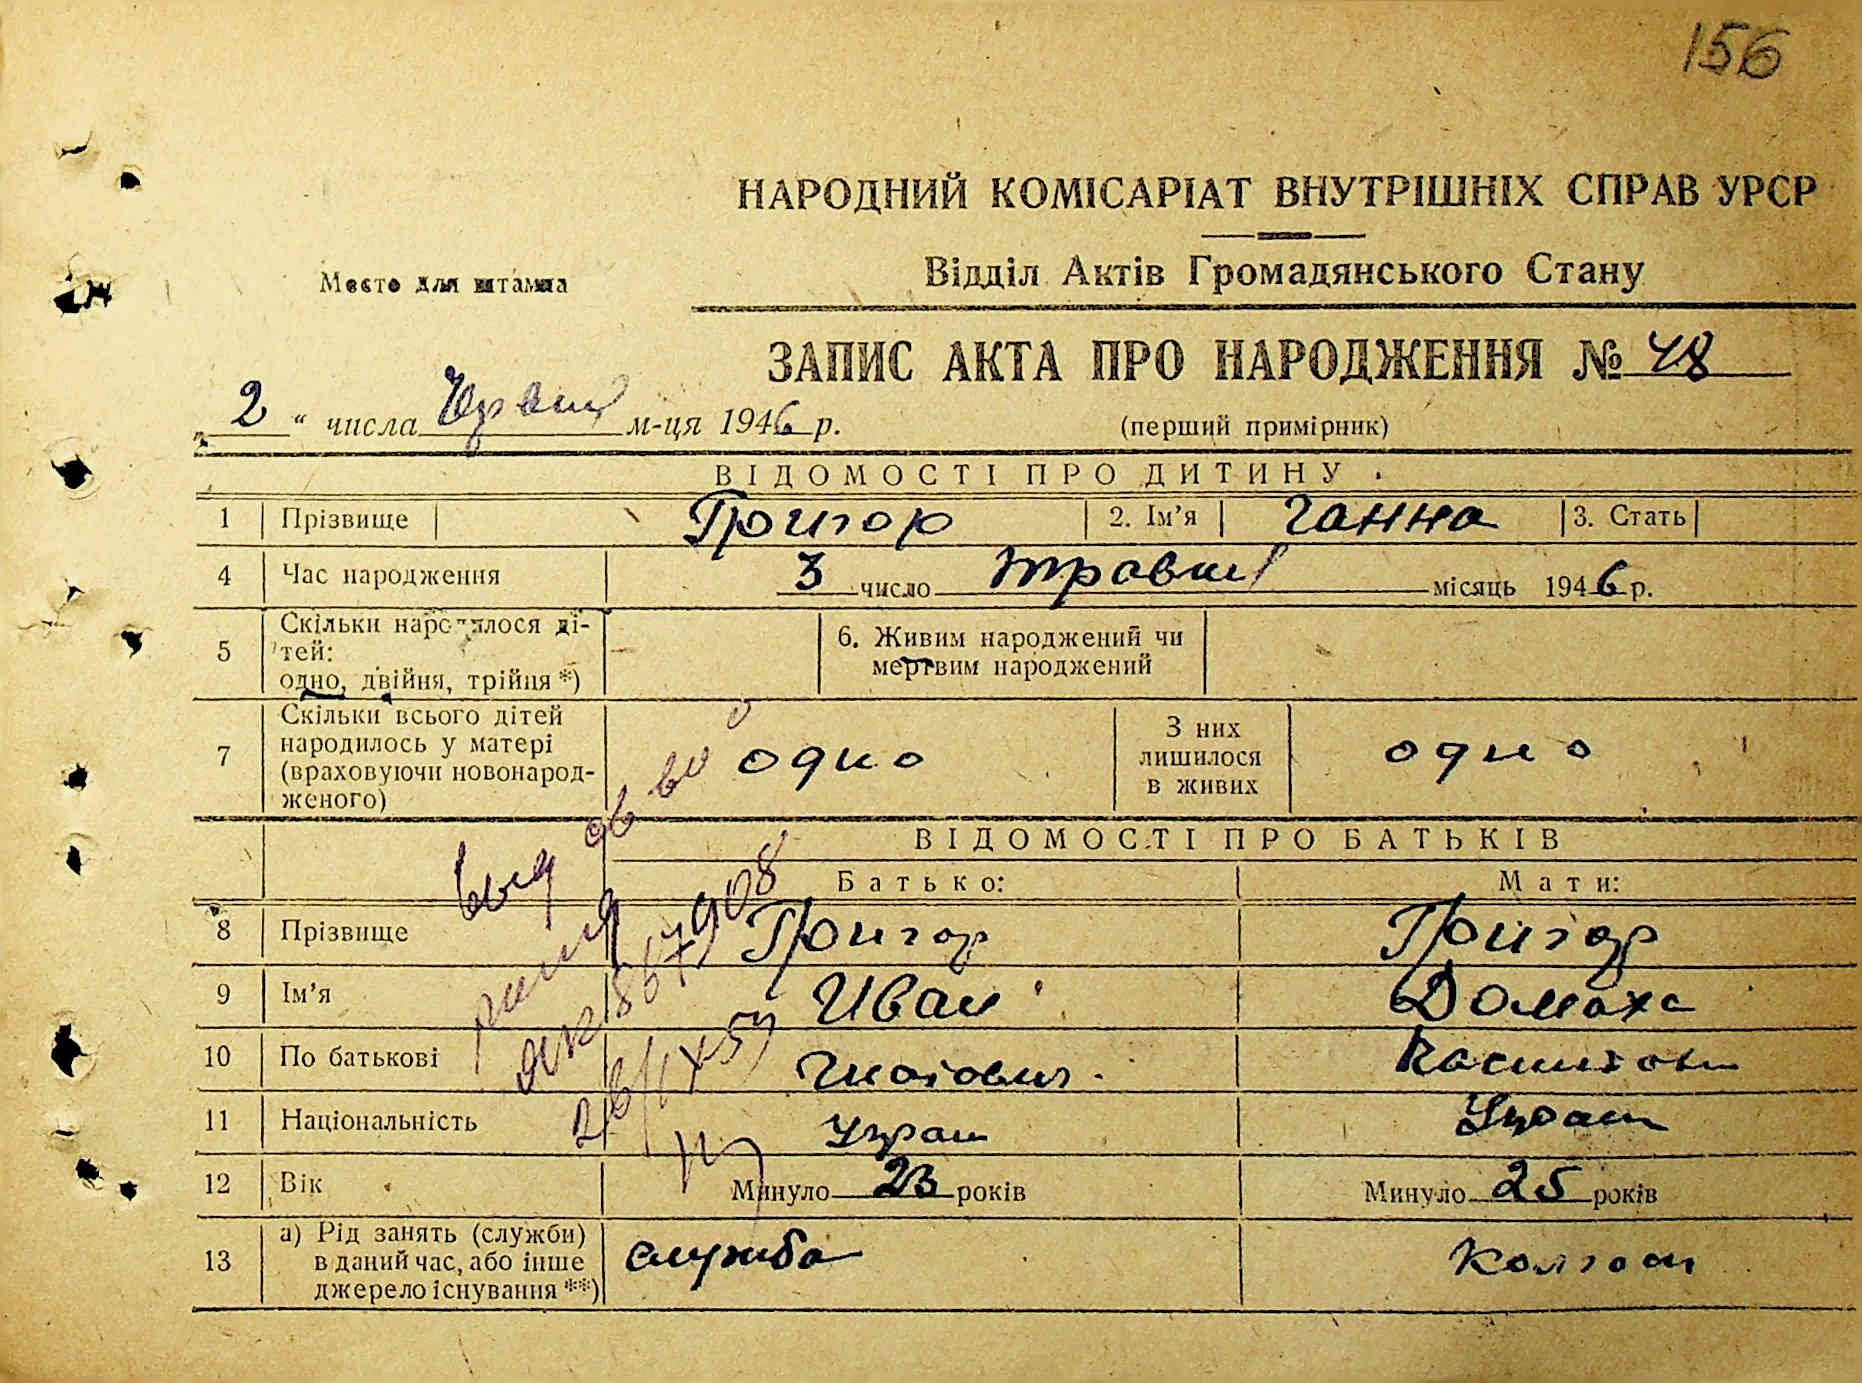 156
НАРОДНИЙ КОМІСАРІАТ ВНУТРІШНІХ СПРАВ УРСР
Відділ Актів Громадянського Стану
Место для штампа
ЗАПИС АКТА ПРО НАРОДЖЕННЯ № 48
„ 2 “ числа Червня м-ця 1946 р.
(перший примірник)
ВІДОМОСТІ ПРО ДИТИНУ
1 Прізвище Григор 2. Ім’я Ганна 3. Стать
4 Час народження 3 число травня місяць 1946 р.
5 Скільки народилося ді-
тей:
одно, двійня, трійця *)
6. Живим народжений чи
мертвим народжений
7 Скільки всього дітей
народилось у матері
(враховуючи новонарод-
женого)
одно
З них
лишилося
в живих
одно
ВІДОМОСТІ ПРО БАТЬКІВ
Батько: Мати:
8 Прізвище Григор Григор
9 Ім’я Иван Домаха
10 По батькові
11 Національність Украін Украін
12 Вік Минуло 23 років Минуло 25 років
13 а) Рід занять (служби)
в даний час, або інше
джерело існування **)
служба Колгосп
867908